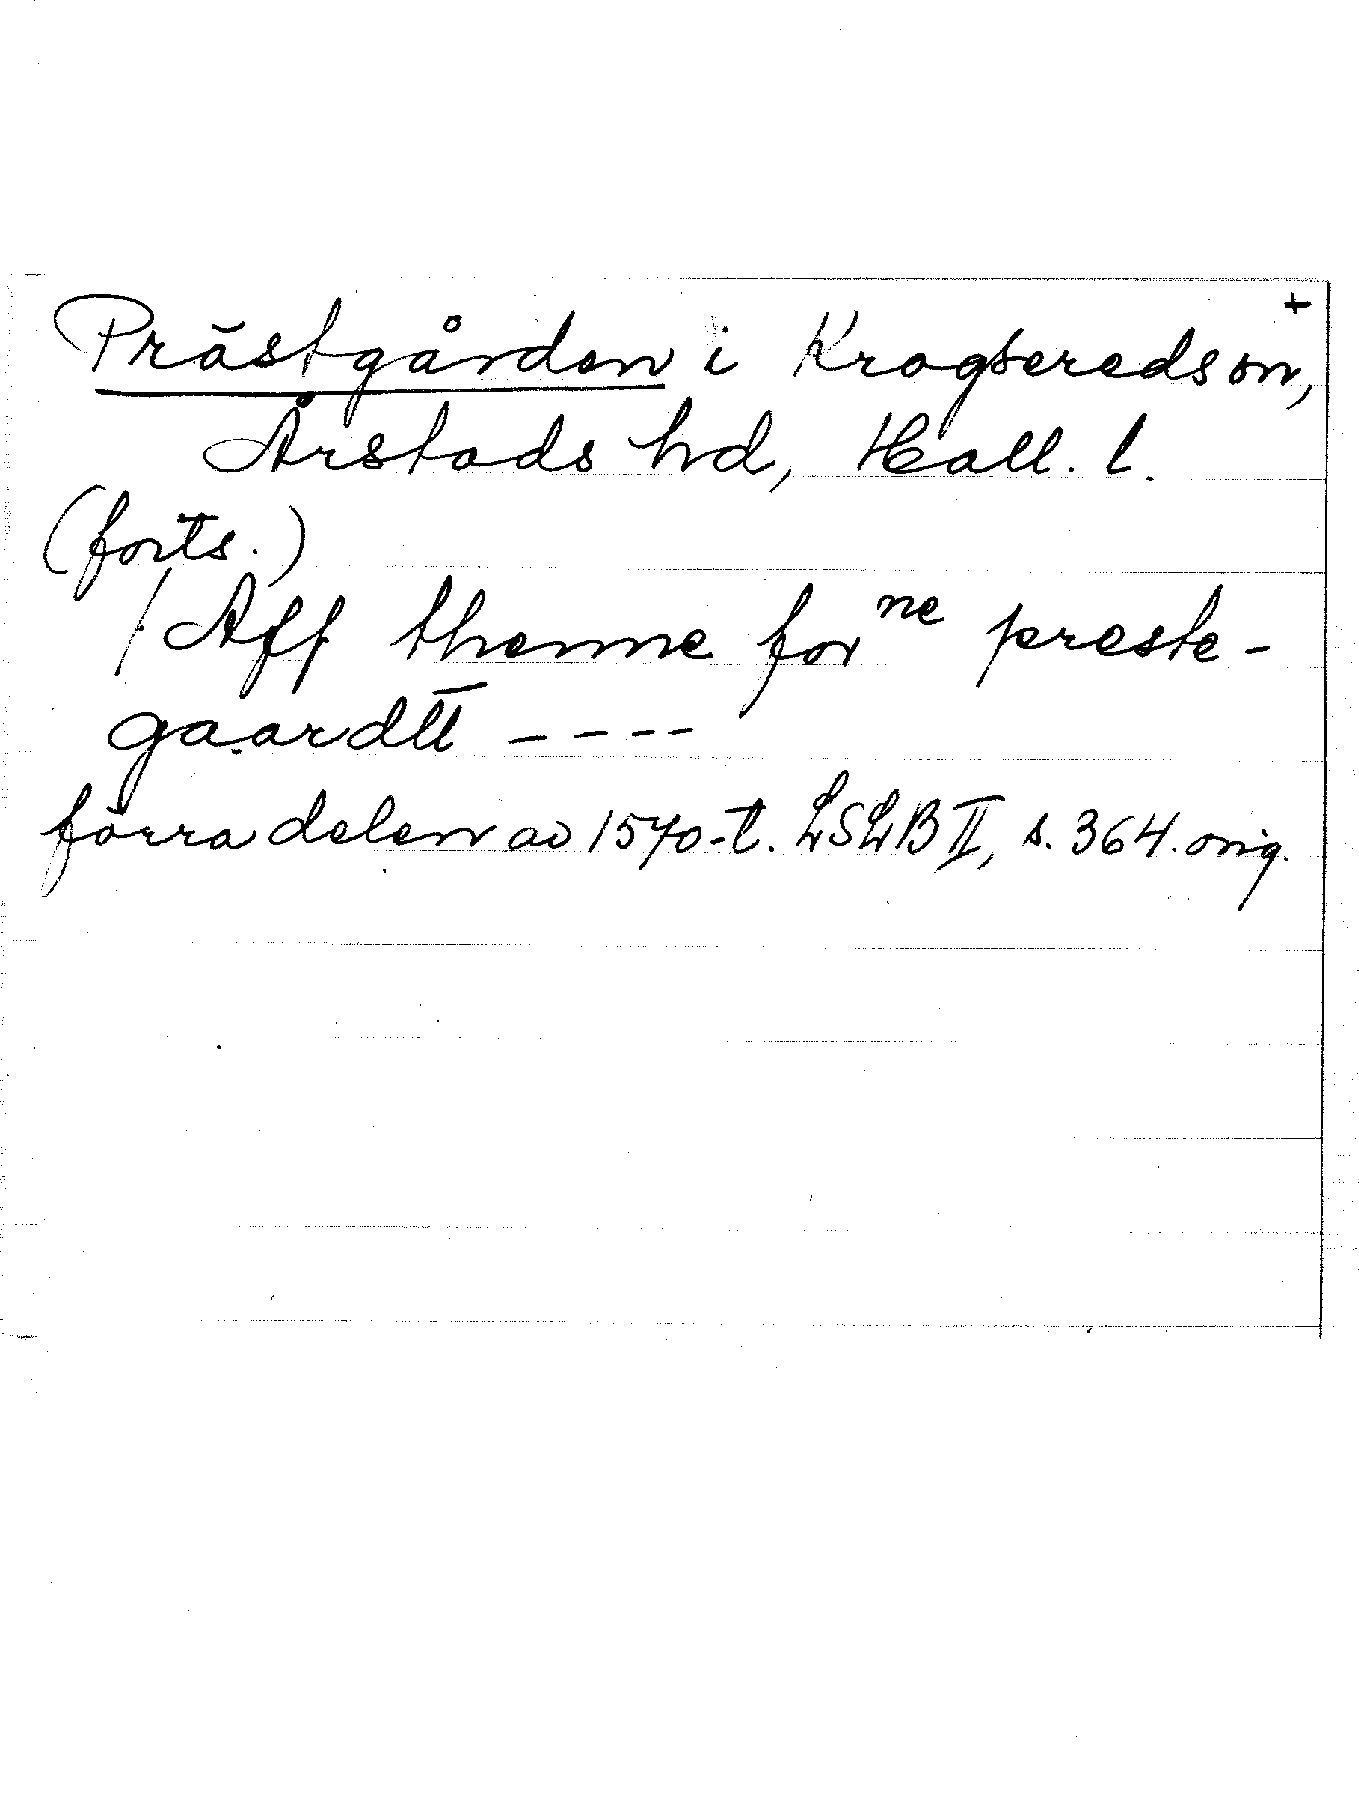 +
Prästgården i Krogsereds sn,
Årstads hd, Hall. l.
(forts.)
/ Aff thenne forⁿᵉ preste-
gaardtt ----
förra delen av 1570-t. LSLB II, s. 364. orig.